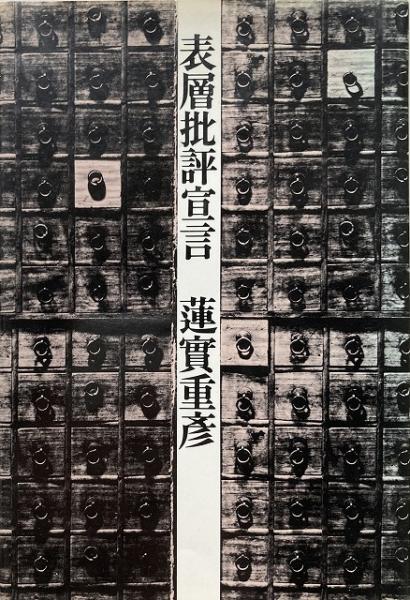 表層批評宣言　蓮實重彥